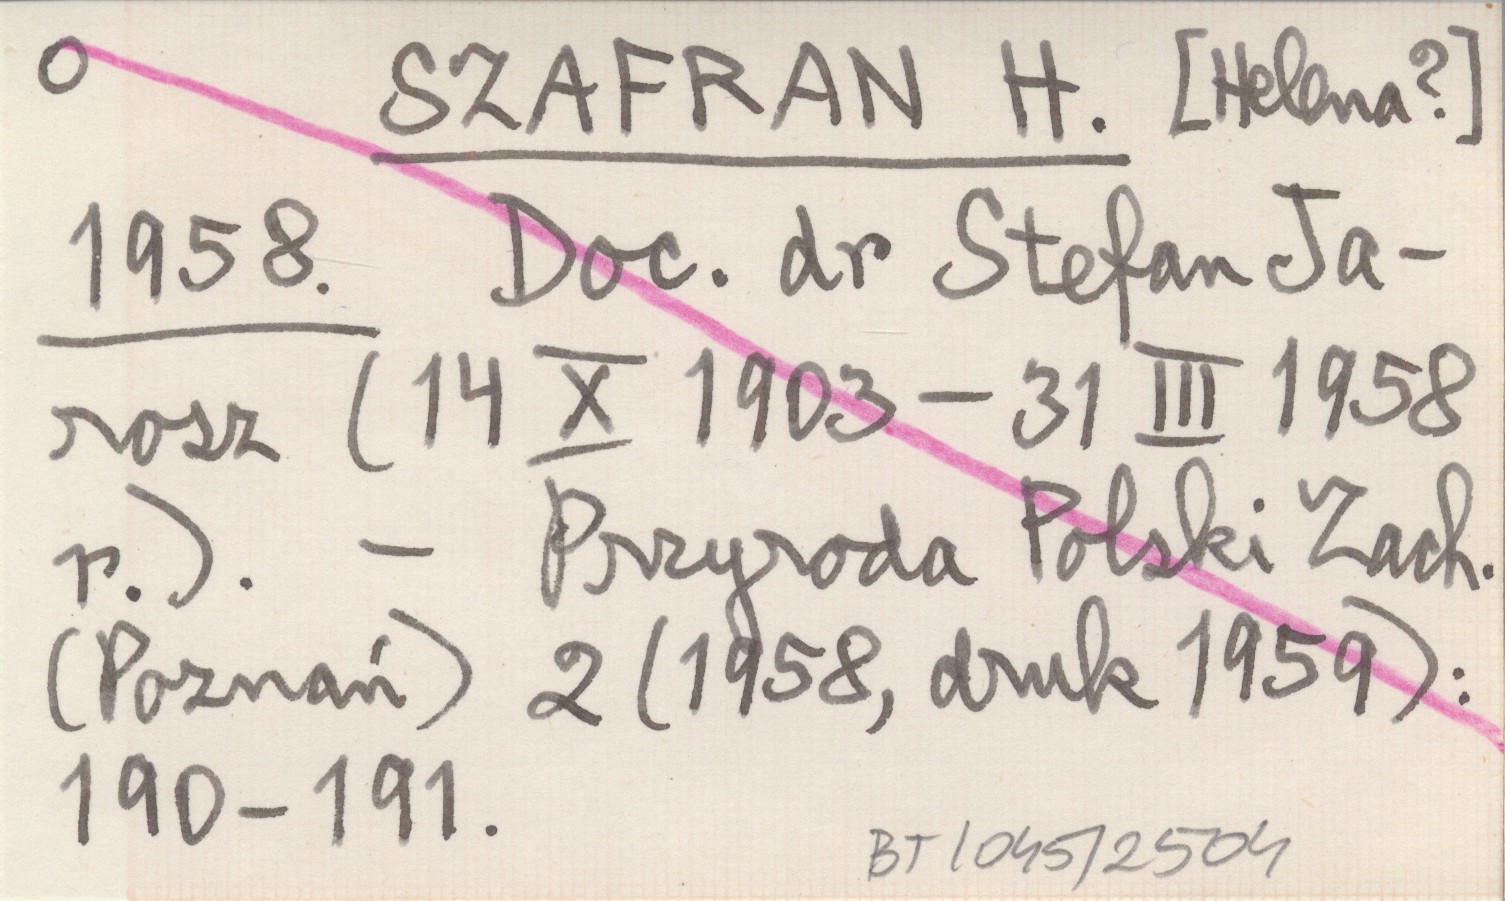 O SZAFRAN H. [Helena?]
1958. Doc. dr Stefan Ja-
rosz (14 X 1903 – 31 III 1958
r.). – Przyroda Polski Zach.
(Poznań) 2 (1958, druk 1959):
190–191.
BT/045/2504